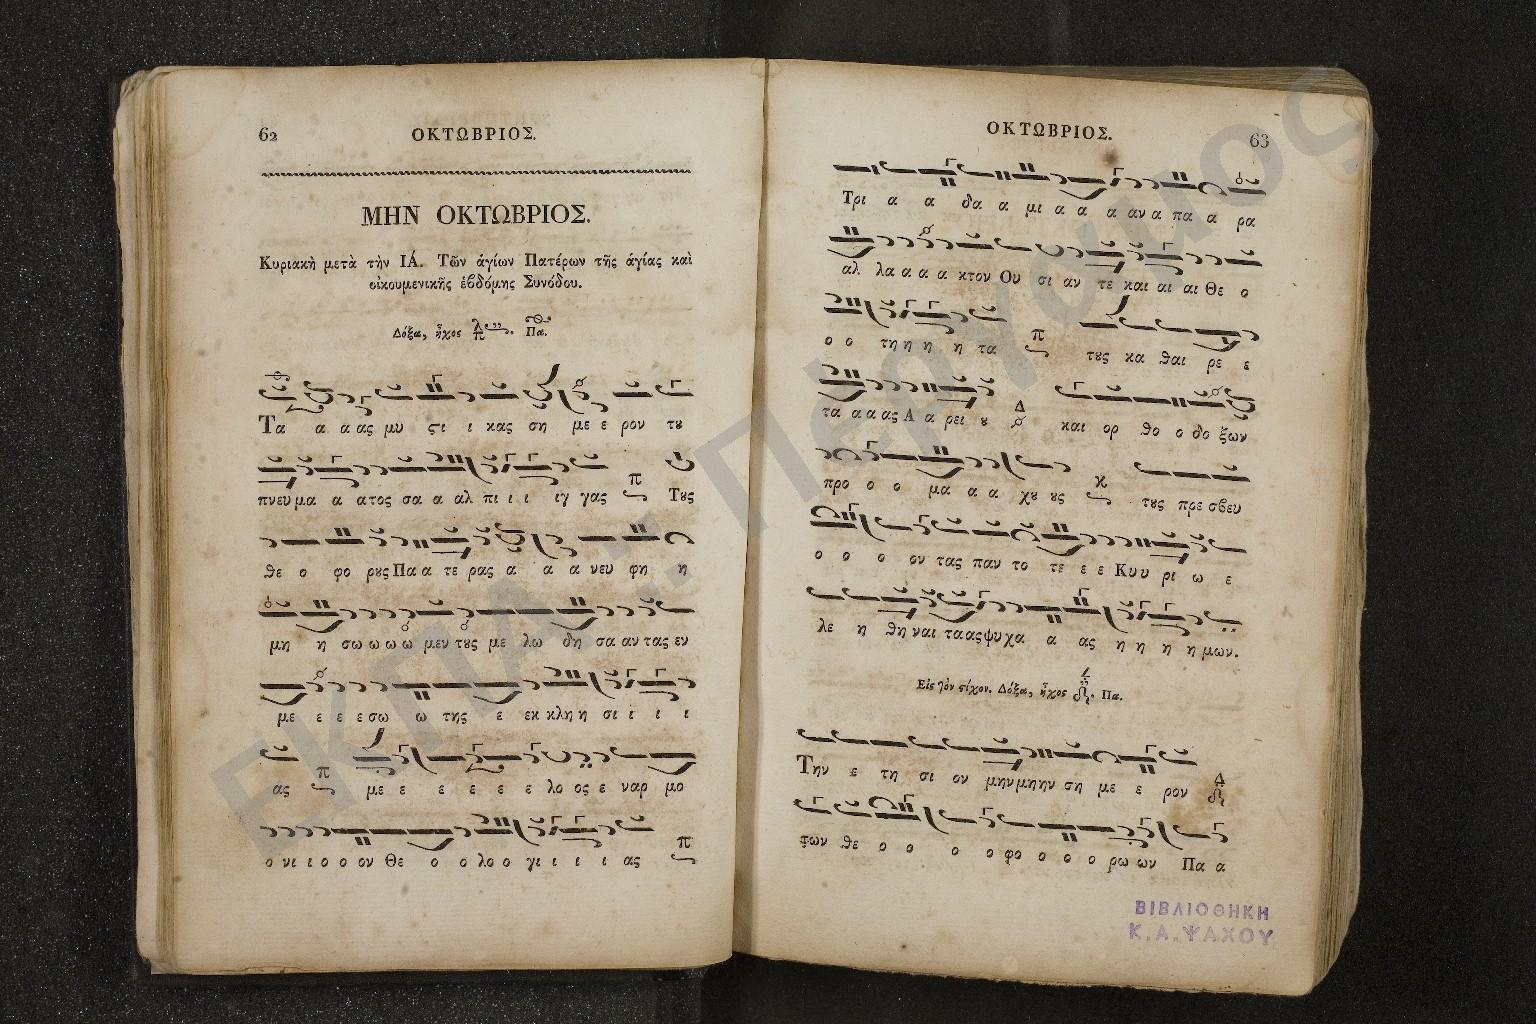 62
ΟΚΤΩΒΡΙΟΣ.
ΜΗΝ ΟΚΤΩΒΡΙΟΣ.
Κυριακὴ μετὰ τὴν ΙΑ. Τῶν ἁγίων Πατέρων τῆς ἁγίας καὶ
οἰκουμενικῆς ἑβδόμης Συνόδου.
Δόξα, ἦχος Πα.
Τα α α ας μυ ςι ι κας ση με ε ρον τȣ
πνευ μα α α τος σα α αλ πι ι ι ιγ γας Τȣς
θε ο φο ρȣς Πα α τε ρας α α α νευ φη η
μη η σω ω ω ω ω μεν τȣς με λω δη σα αν τας εν
με ε ε ε σω ω της ε εκ κλη η σι ι ι ι
ας με ε ε ε ε ε λο ος ε ναρ μο
ο νι ι ο ο ον Θε ο ο λο ο γι ι ι ι ας
ΟΚΤΩΒΡΙΟΣ.
63
Τρι α α δα α μι α α α αν α πα α ρα
αλ λα α α α κτον Ου σι αν τε και αι αι Θε ο
ο ο τη η η η τα τȣς κα θαι ρε ε
τα α α ας Α α ρει ȣ και ορ θο ο δο ξων
προ ο ο μα α α χȣ ȣς τȣς πρε σβευ
ο ο ο ον τας παν το τε ε ε Κυ υ ρι ω ε
λε η θη ναι τα ας ψυ χα α ας η η η η μων.
Εἰς τὸν ςίχον. Δόξα, ἦχος Πα.
Την ε τη σι ον μην μη ην ση με ε ρον
των θε ο ο ο ο φο ο ο ο ρω ων Πα α
ΒΙΒΛΙΟΘΗΚΗ
Κ.Α.ΨΑΧΟΥ